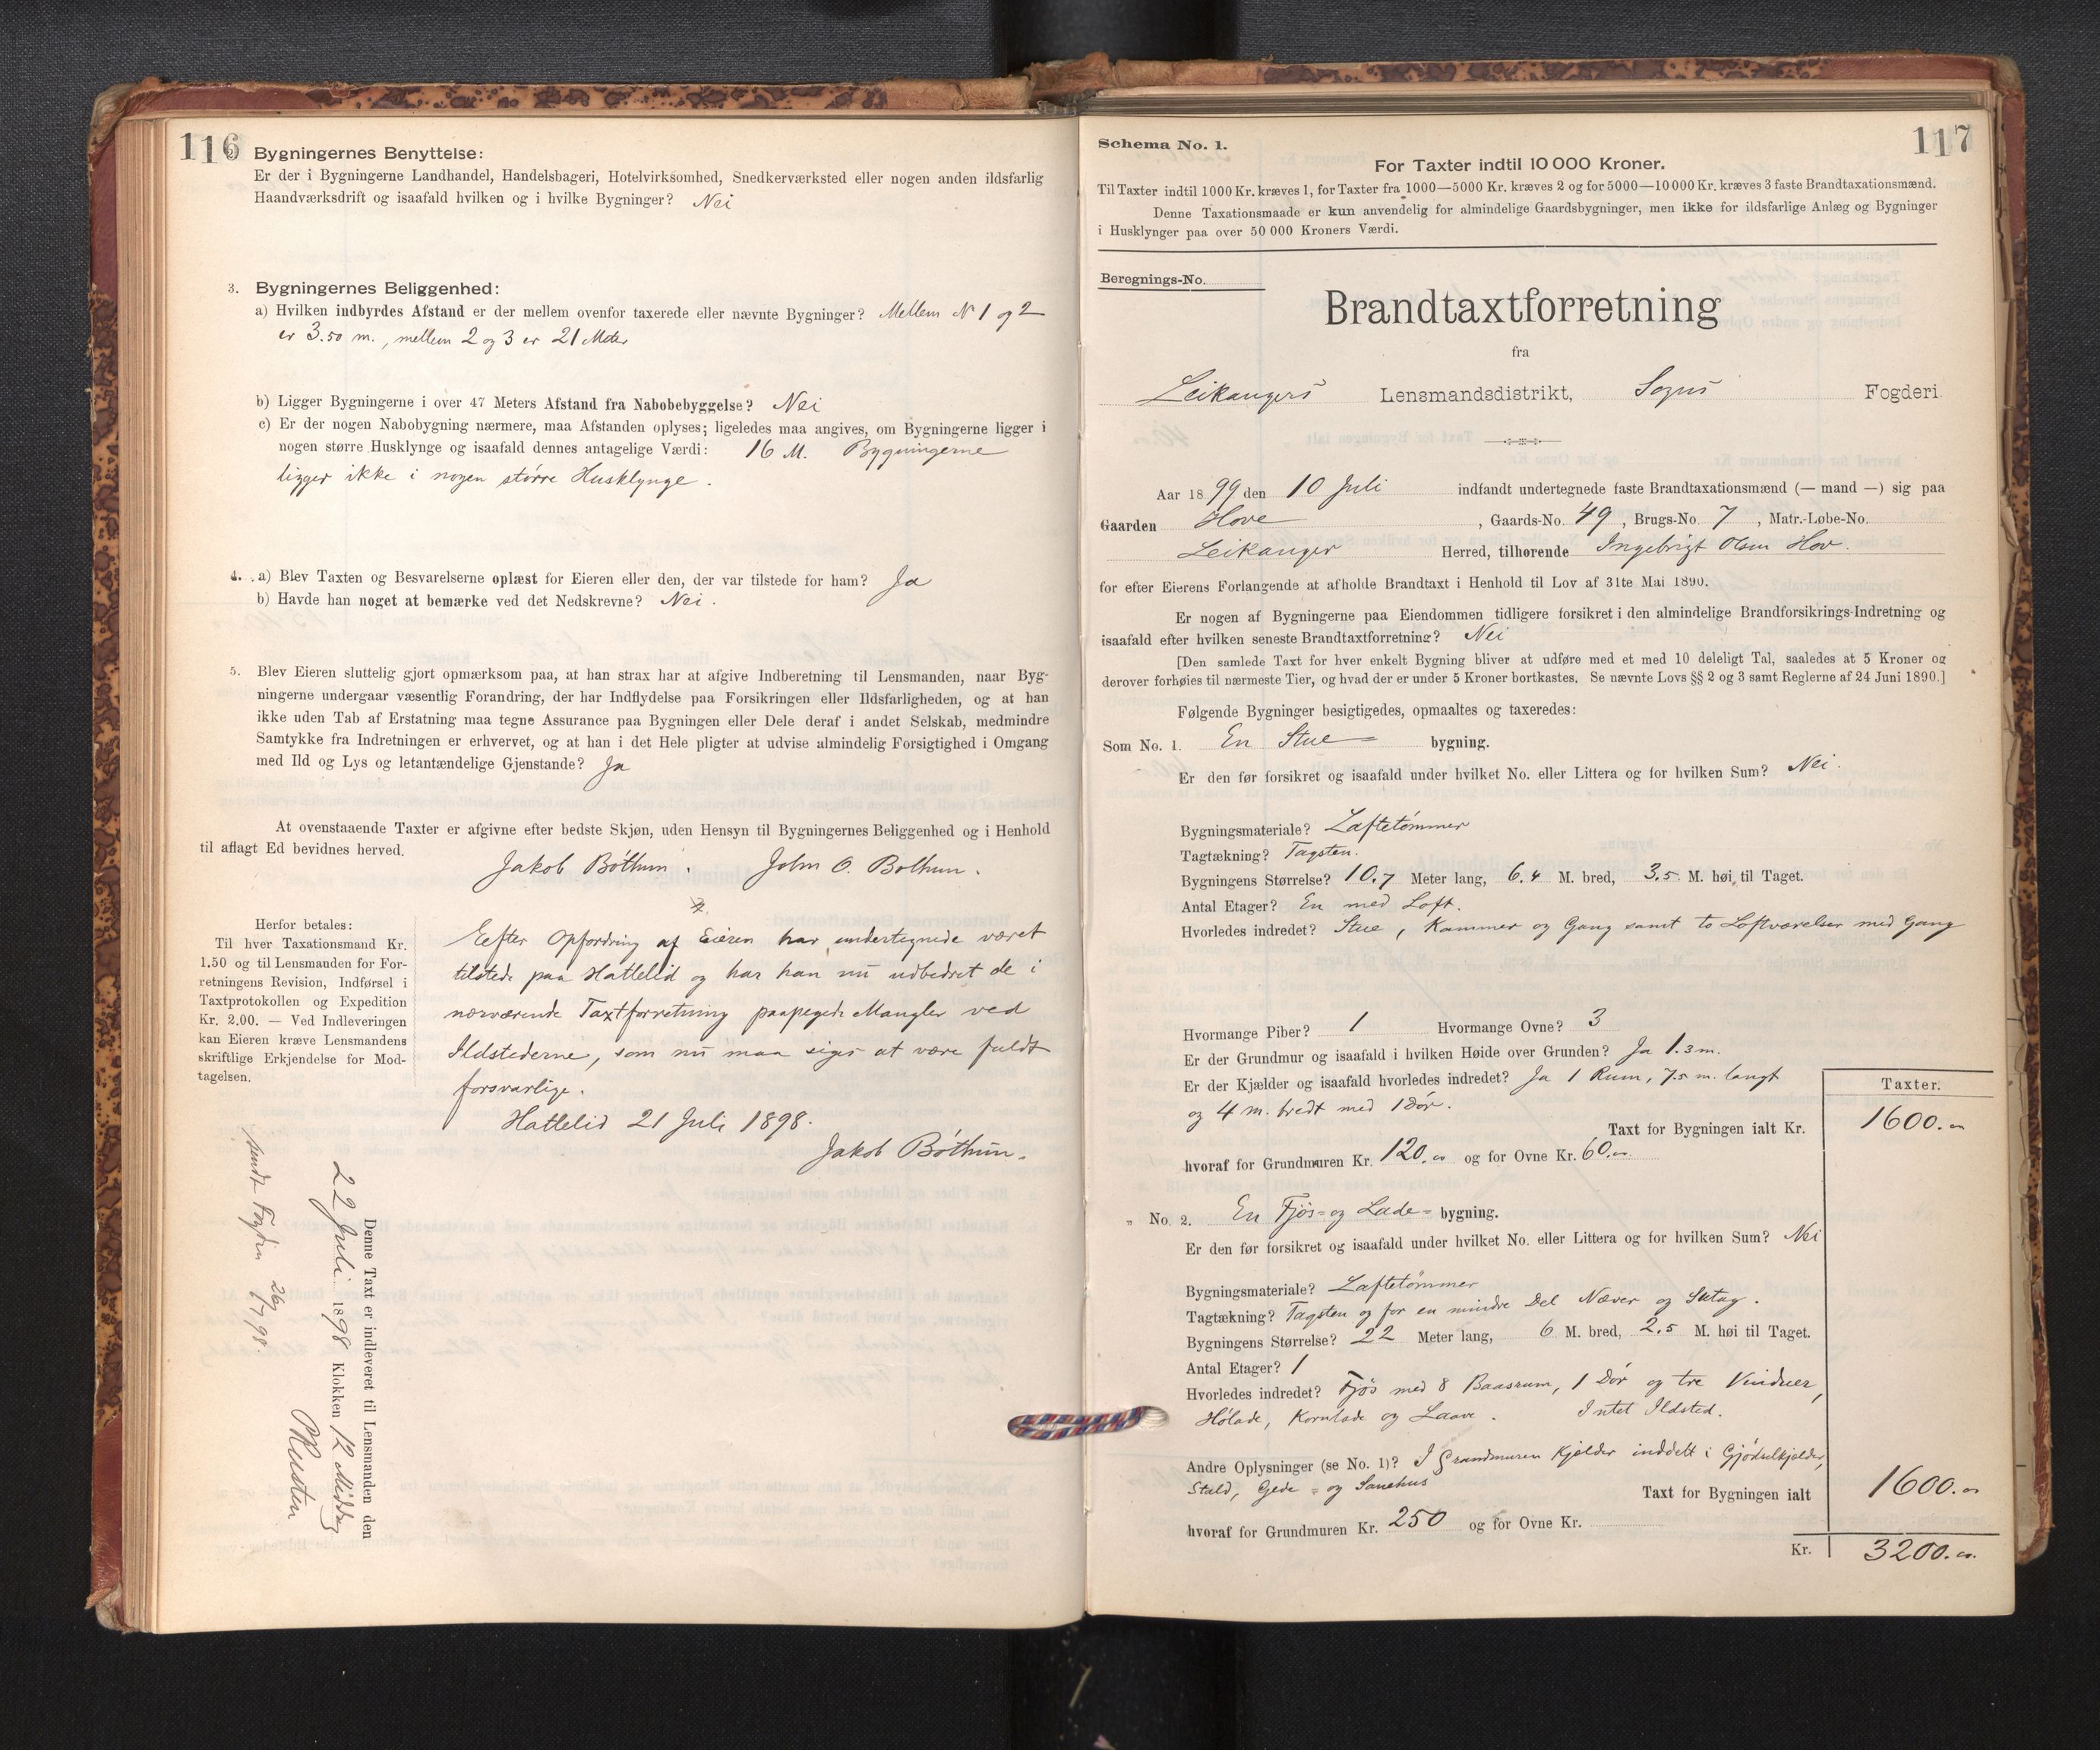 116
Bygningernes Benyttelse:
Er der i Bygningerne Landhandel, Handelsbageri, Hotelvirksomhed, Snedkerværksted eller nogen anden ildsfarlig
Haandværksdrift og isaafald hvilken og i hvilke Bygninger? Nei
3. Bygningernes Beliggenhed:
a) Hvilken indbyrdes Afstand er der mellem ovenfor taxerede eller nævnte Bygninger? Mellem No 1 og 2
er 3.50 m., mellem 2 og 3 er 21 Meter
b) Ligger Bygningerne i over 47 Meters Afstand fra Nabobebyggelse? Nei
c) Er der nogen Nabobygning nærmere, maa Afstanden oplyses; ligeledes maa angives, om Bygningerne ligger i
nogen større Husklynge og isaafald dennes antagelige Værdi: 16 M. Bygningerne
ligger ikke i nogen større Husklynge.
4. a) Blev Taxten og Besvarelserne oplæst for Eieren eller den, der var tilstede for ham? Ja
b) Havde han noget at bemærke ved det Nedskrevne? Nei.
5. Blev Eieren sluttelig gjort opmærksom paa, at han strax har at afgive Indberetning til Lensmanden, naar Byg-
ningerne undergaar væsentlig Forandring, der har Indflydelse paa Forsikringen eller Ildsfarligheden, og at han
ikke uden Tab af Erstatning maa tegne Assurance paa Bygningen eller Dele deraf i andet Selskab, medmindre
Samtykke fra Indretningen er erhvervet, og at han i det Hele pligter at udvise almindelig Forsigtighed i Omgang
med Ild og Lys og letantændelige Gjenstande? Ja
At ovenstaaende Taxter er afgivne efter bedste Skjøn, uden Hensyn til Bygningernes Beliggenhed og i Henhold
til aflagt Ed bevidnes herved.
Jakob Bøthun. John O. Bøthun.
Herfor betales:
Til hver Taxationsmand Kr.
1.50 og til Lensmanden for For-
retningens Revision, Indførsel i
Taxtprotokollen og Expedition
Kr. 2.00. — Ved Indleveringen
kan Eieren kræve Lensmandens
skriftlige Erkjendelse for Mod-
tagelsen.
Eefter Opfordring af Eieren har undertegnede været
tilstede paa Hattelid og har han nu udbedret de i
nærværende Taxtforretning paapegede Mangler ved
Ildstederne, som nu maa siges at være fuldt
forsvarlige.
Hattelid 21 Juli 1898.
Jakob Bøthun.
Denne Taxt er indleveret til Lensmanden den
22 Juli 1898 Klokken 12 Middag
sendt Fogden 26/7 98
117
Schema No. 1.
For Taxter indtil 10 000 Kroner.
Til Taxter indtil 1000 Kr. kræves 1, for Taxter fra 1000—5000 Kr. kræves 2 og for 5000—10 000 Kr. kræves 3 faste Brandtaxationsmænd.
Denne Taxationsmaade er kun anvendelig for almindelige Gaardsbygninger, men ikke for ildsfarlige Anlæg og Bygninger
i Husklynger paa over 50 000 Kroners Værdi.
Beregnings-No.
Brandtaxtforretning
fra
Leikangers Lensmandsdistrikt, Sogns Fogderi.
Aar 1899 den 10 Juli indfandt undertegnede faste Brandtaxationsmænd (— mand —) sig paa
Gaarden Hove, Gaards-No. 49, Brugs-No. 7, Matr.-Løbe-No.
Leikanger Herred, tilhørende Ingebrigt Olsen Hov.
for efter Eierens Forlangende at afholde Brandtaxt i Henhold til Lov af 31te Mai 1890.
Er nogen af Bygningerne paa Eiendommen tidligere forsikret i den almindelige Brandforsikrings-Indretning og
isaafald efter hvilken seneste Brandtaxtforretning? Nei
[Den samlede Taxt for hver enkelt Bygning bliver at udføre med et med 10 deleligt Tal, saaledes at 5 Kroner og
derover forhøies til nærmeste Tier, og hvad der er under 5 Kroner bortkastes. Se nævnte Lovs §§ 2 og 3 samt Reglerne af 24 Juni 1890.]
Følgende Bygninger besigtigedes, opmaaltes og taxeredes:
Som No. 1. En Stue= bygning.
Er den før forsikret og isaafald under hvilket No. eller Littera og for hvilken Sum? Nei.
Bygningsmateriale? Laftetømmer
Tagtækning? Tagsten.
Bygningens Størrelse? 10.7 Meter lang, 6.4 M. bred, 3.5 M. høi til Taget.
Antal Etager? En med Loft.
Hvorledes indredet? Stue, Kammer og Gang samt to Loftværelser med Gang
Hvormange Piber? 1 Hvormange Ovne? 3
Er der Grundmur og isaafald i hvilken Høide over Grunden? Ja 1.3 m.
Er der Kjælder og isaafald hvorledes indredet? Ja 1 Rum, 7.5 m. langt
og 4 m. bredt med 1 Dør.
Taxter.
Taxt for Bygningen ialt Kr. 1600.
hvoraf for Grundmuren Kr. 120. og for Ovne Kr. 60.
" No. 2. En Fjøs= og Lade= bygning.
Er den før forsikret og isaafald under hvilket No. eller Littera og for hvilken Sum? Nei
Bygningsmateriale? Laftetømmer
Tagtækning? Tagsten og for en mindre Del Næver og
Bygningens Størrelse? 22 Meter lang, 6 M. bred, 2.5 M. høi til Taget.
Antal Etager? 1
Hvorledes indredet? Fjøs med 8 Baasrum, 1 Dør og tre Vinduer,
Hølade, Kornlade og Laave. Intet Ildsted.
Andre Oplysninger (se No. 1)? I Grundmuren Kjælder inddelt i Gjødselkjelder,
Stald, Gede= og Sauehus
Taxt for Bygningen ialt 1600.
hvoraf for Grundmuren Kr. 250 og for Ovne Kr.
Kr. 3200.